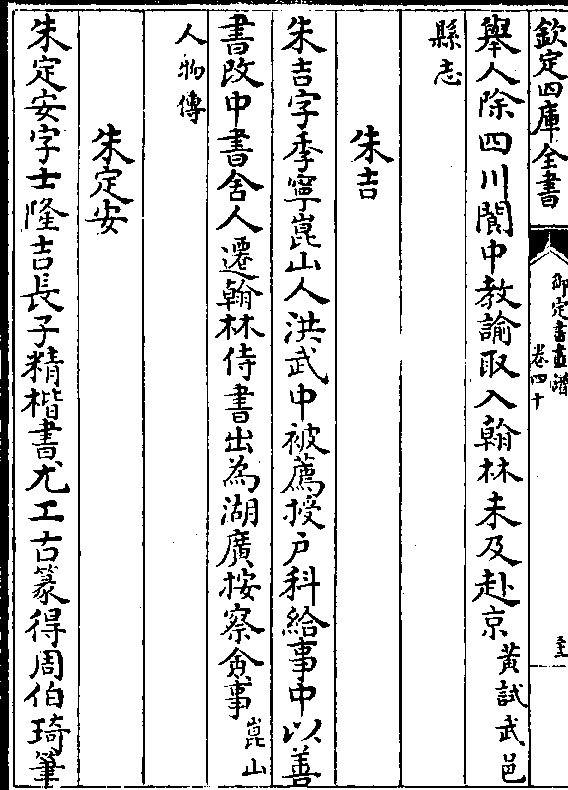 欽定四庫全書
御定書畫譜
卷四十
舉人除四川閬中教諭取入翰林未及赴京黃試武邑
縣志
朱吉
朱吉字季寧崑山人洪武中被薦授戶科給事中以善
書改中書舍人遷翰林侍書出為湖廣按察僉事崑山
人物傳
朱定安
朱定安字士隆吉長子精楷書尤工古篆得周伯琦筆